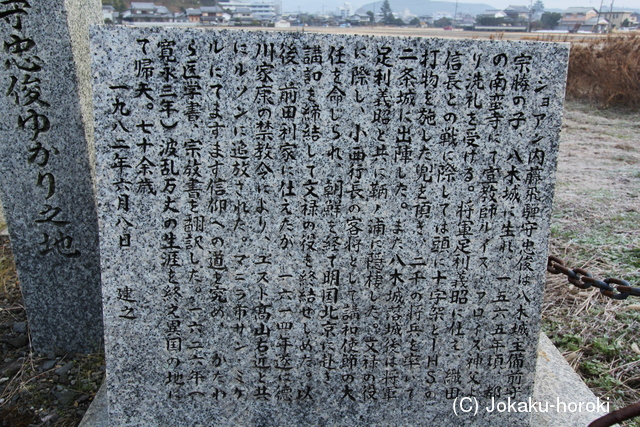 ジョアン内藤飛騨守忠俊は八木城主備前守
宗勝の子 八木城に生れ 一五六五年頃 京都
の南蛮寺にて宣教師ルイス フロイス神父よ
り洗礼を受ける。将軍足利義昭に仕え 織田
信長との戦に際しては頭に十字架とIHSの
打物を施した兜を頂き 二千の将兵を率いて
二条城に出陣した。また八木城落城後は将軍
足利義昭と共に鞆ノ浦に蔭棲した。文禄の役
に際し、小西行長の客将として講和使節の大
任を命じられ、朝鮮を経て明国北京に赴き
講和を締結して文禄の役を終結せしめた。以
後、前田利家に仕えたが 一六一四年遂に徳
川家康の禁教令により、ユスト高山右近と共
にルソンに追放された。マニラ市サンミゲ
ルにてますます信仰への道を究め、かたわ
ら医学書、宗教書を翻訳した。一六二六年（
寛永三年）波乱万丈の生涯を終え異国の地に
て帰天。七十余歳
一九八二年六月八日 建之
守忠俊ゆかり之地
(C) Jokaku-horoki